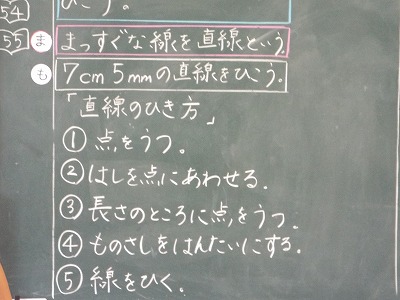 54 ひこう。
55 ま まっすぐな線を直線という。
も 7cm5mmの直線をひこう。
「直線のひき方」
① 点をうつ。
② はしを点にあわせる。
③ 長さのところに点をうつ。
④ ものさしをはんたいにする。
⑤ 線をひく。